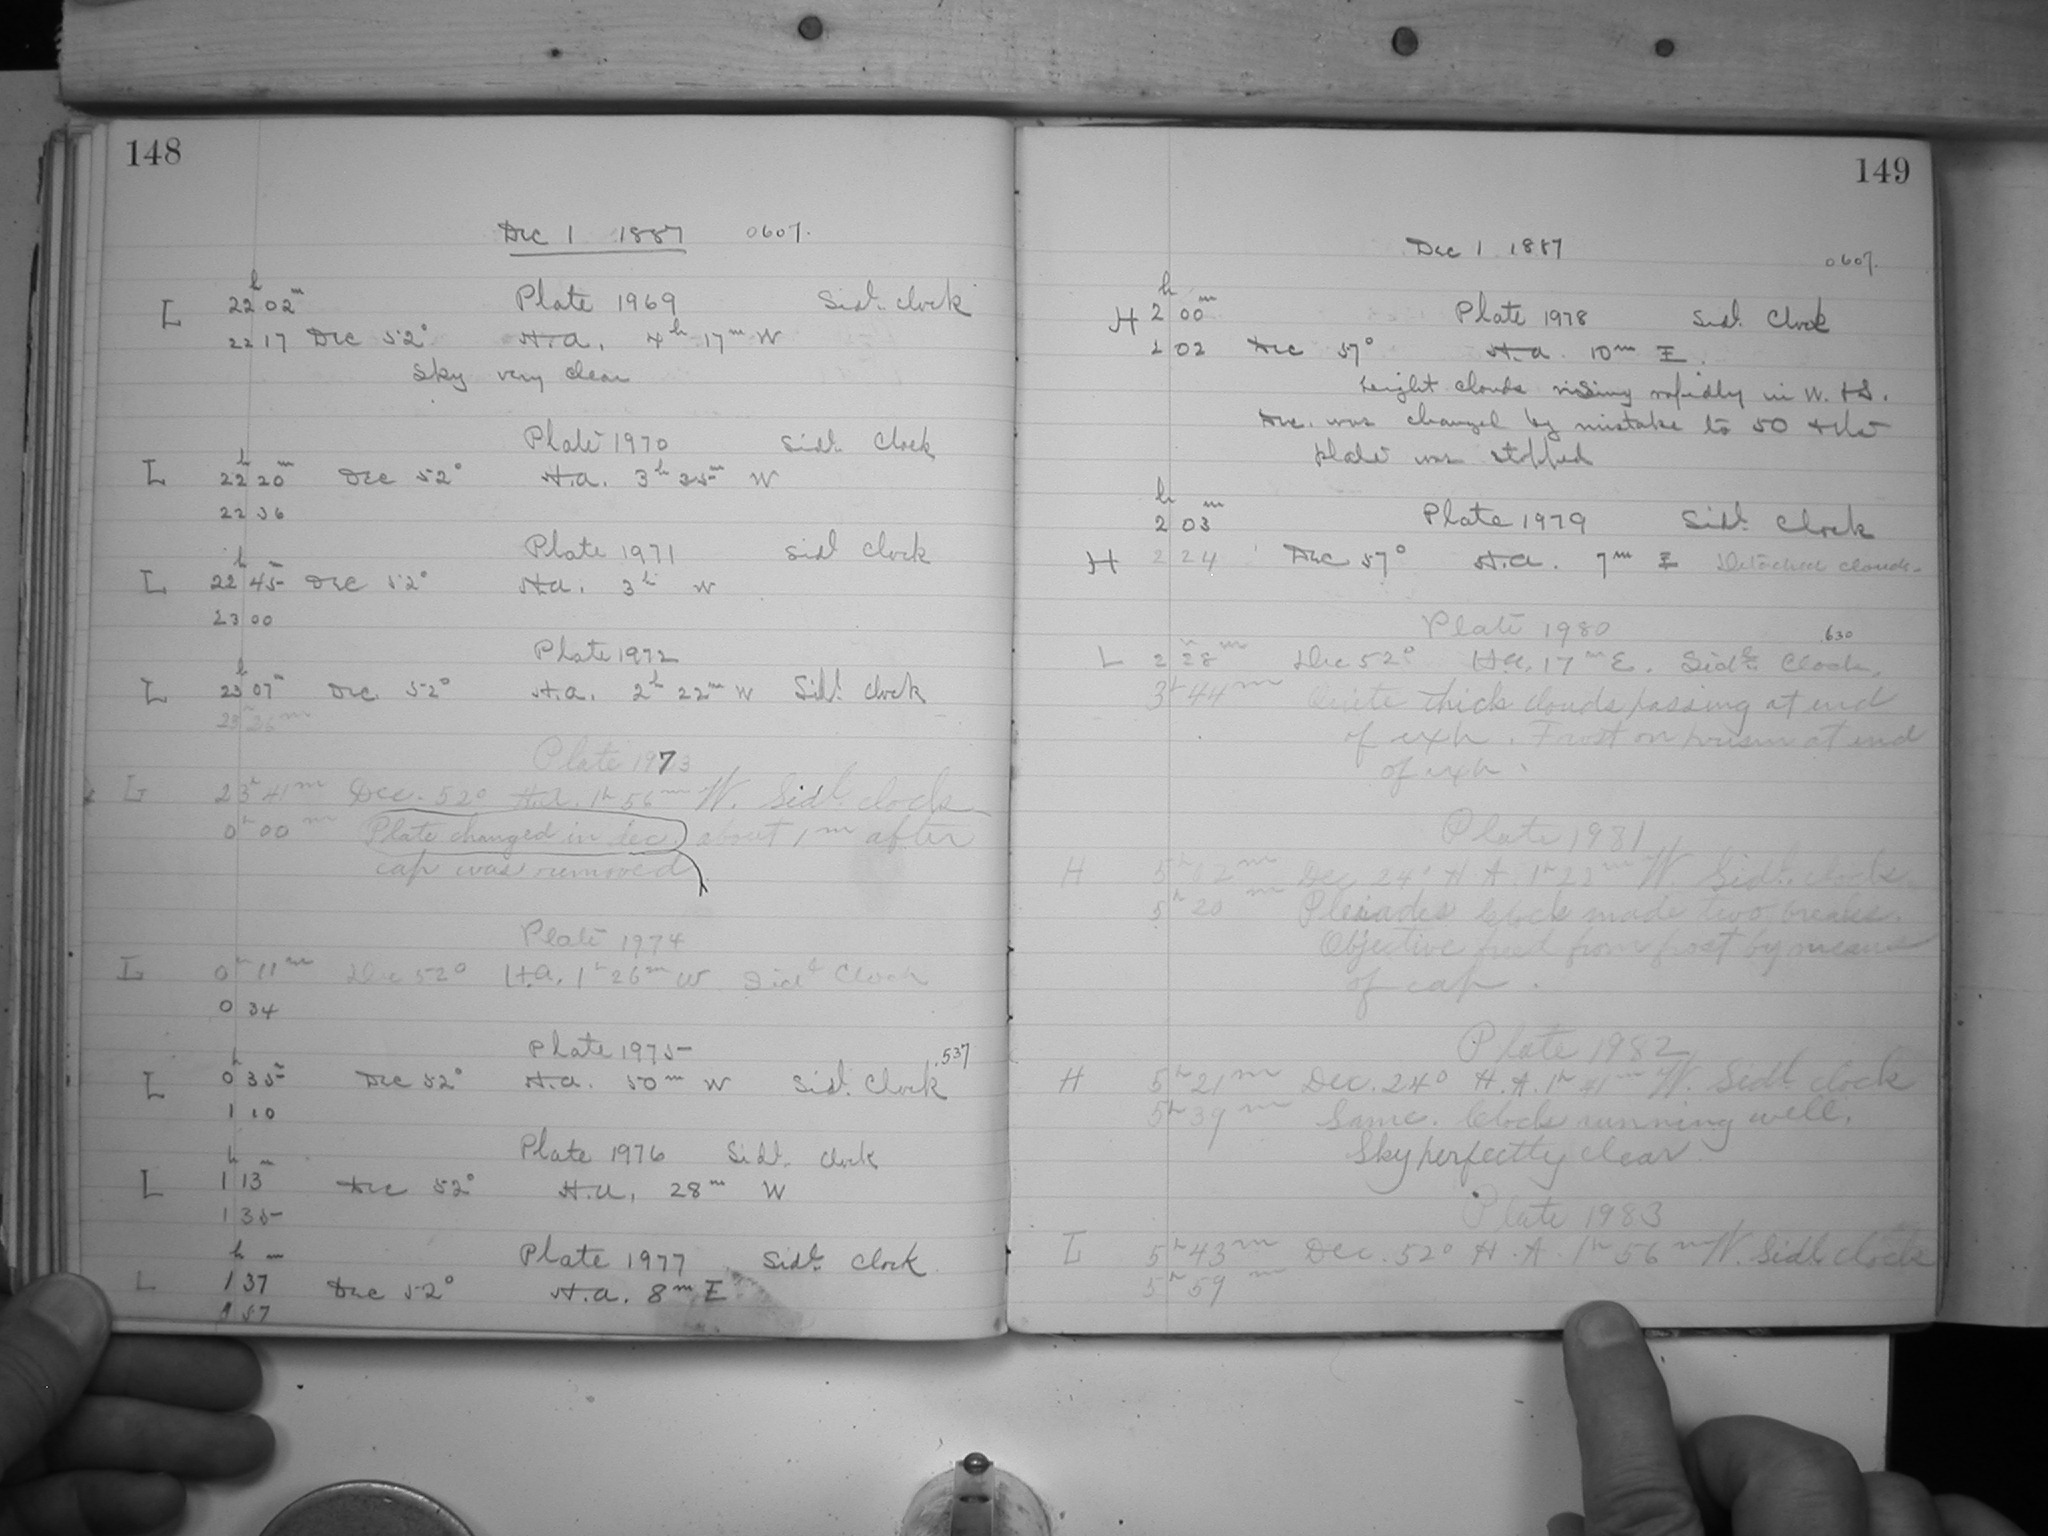 148
Dec 1 1887 0607.
h
L 22 02 m Plate 1969 Sidl. clock
22 17 Dec 52° H.A. 4h 17m W
Sky very clear
Plate 1970 Sidl. Clock
L 22h 20m Dec 52° H.A. 3h 25m W
22 36
Plate 1971 Sidl Clock
L 22h 45m Dec 52° H.A. 3h W
23 00
Plate 1972
L 23h 07m Dec. 52° H.A. 2h 22m W Sidl. Clock
23 26m
Plate 1973
L 23h 41m Dec. 52° H.A. 1h 56m W. Sidl. clock
0h 00m Plate changed in dec about 1m after
cap was removed
Plate 1974
L 0h 11m Dec 52° H.A. 1h 26m W Sidl Clock
0 34
Plate 1975 .537
L 0h 35m Dec 52° H.A. 50m W Sidl. Clock
1 10
Plate 1976 Sidl. Clock
L 1h 13m Dec 52° H.A. 28m W
1 35
h m Plate 1977 Sidl. Clock
L 1 37 Dec 52° H.A. 8m E
1 57
149
Dec 1 1887 0607.
h
H 2 00m Plate 1978 Sidl. Clock
2 02 Dec 57° H.A. 10m E.
Light clouds rising rapidly in W. & S.
Dec. was changed by mistake to 50 & the
plate was stopped
h m
2 03 Plate 1979 Sidl. Clock
H 2 24 Dec 57° H.A. 7m E Detached clouds.
Plate 1980 .630
L 2h 28m Dec 52° H.A. 17m E. Sidl. Clock.
3h 44m Quite thick clouds passing at end
of exp. Frost on prism at end
of exp.
Plate 1981
H 5h 02m Dec. 24° H.A. 1h 22m W. Sidl. clock.
5h 20m Pleiades Clock made two breaks.
Objective freed from frost by means
of cap.
Plate 1982
H 5h 21m Dec. 24° H.A. 1h 41m W. Sidl. clock
5h 39m Same. Clock running well.
Sky perfectly clear
Plate 1983
L 5h 43m Dec. 52° H.A 1h 56m W. Sidl. clock
5h 59m